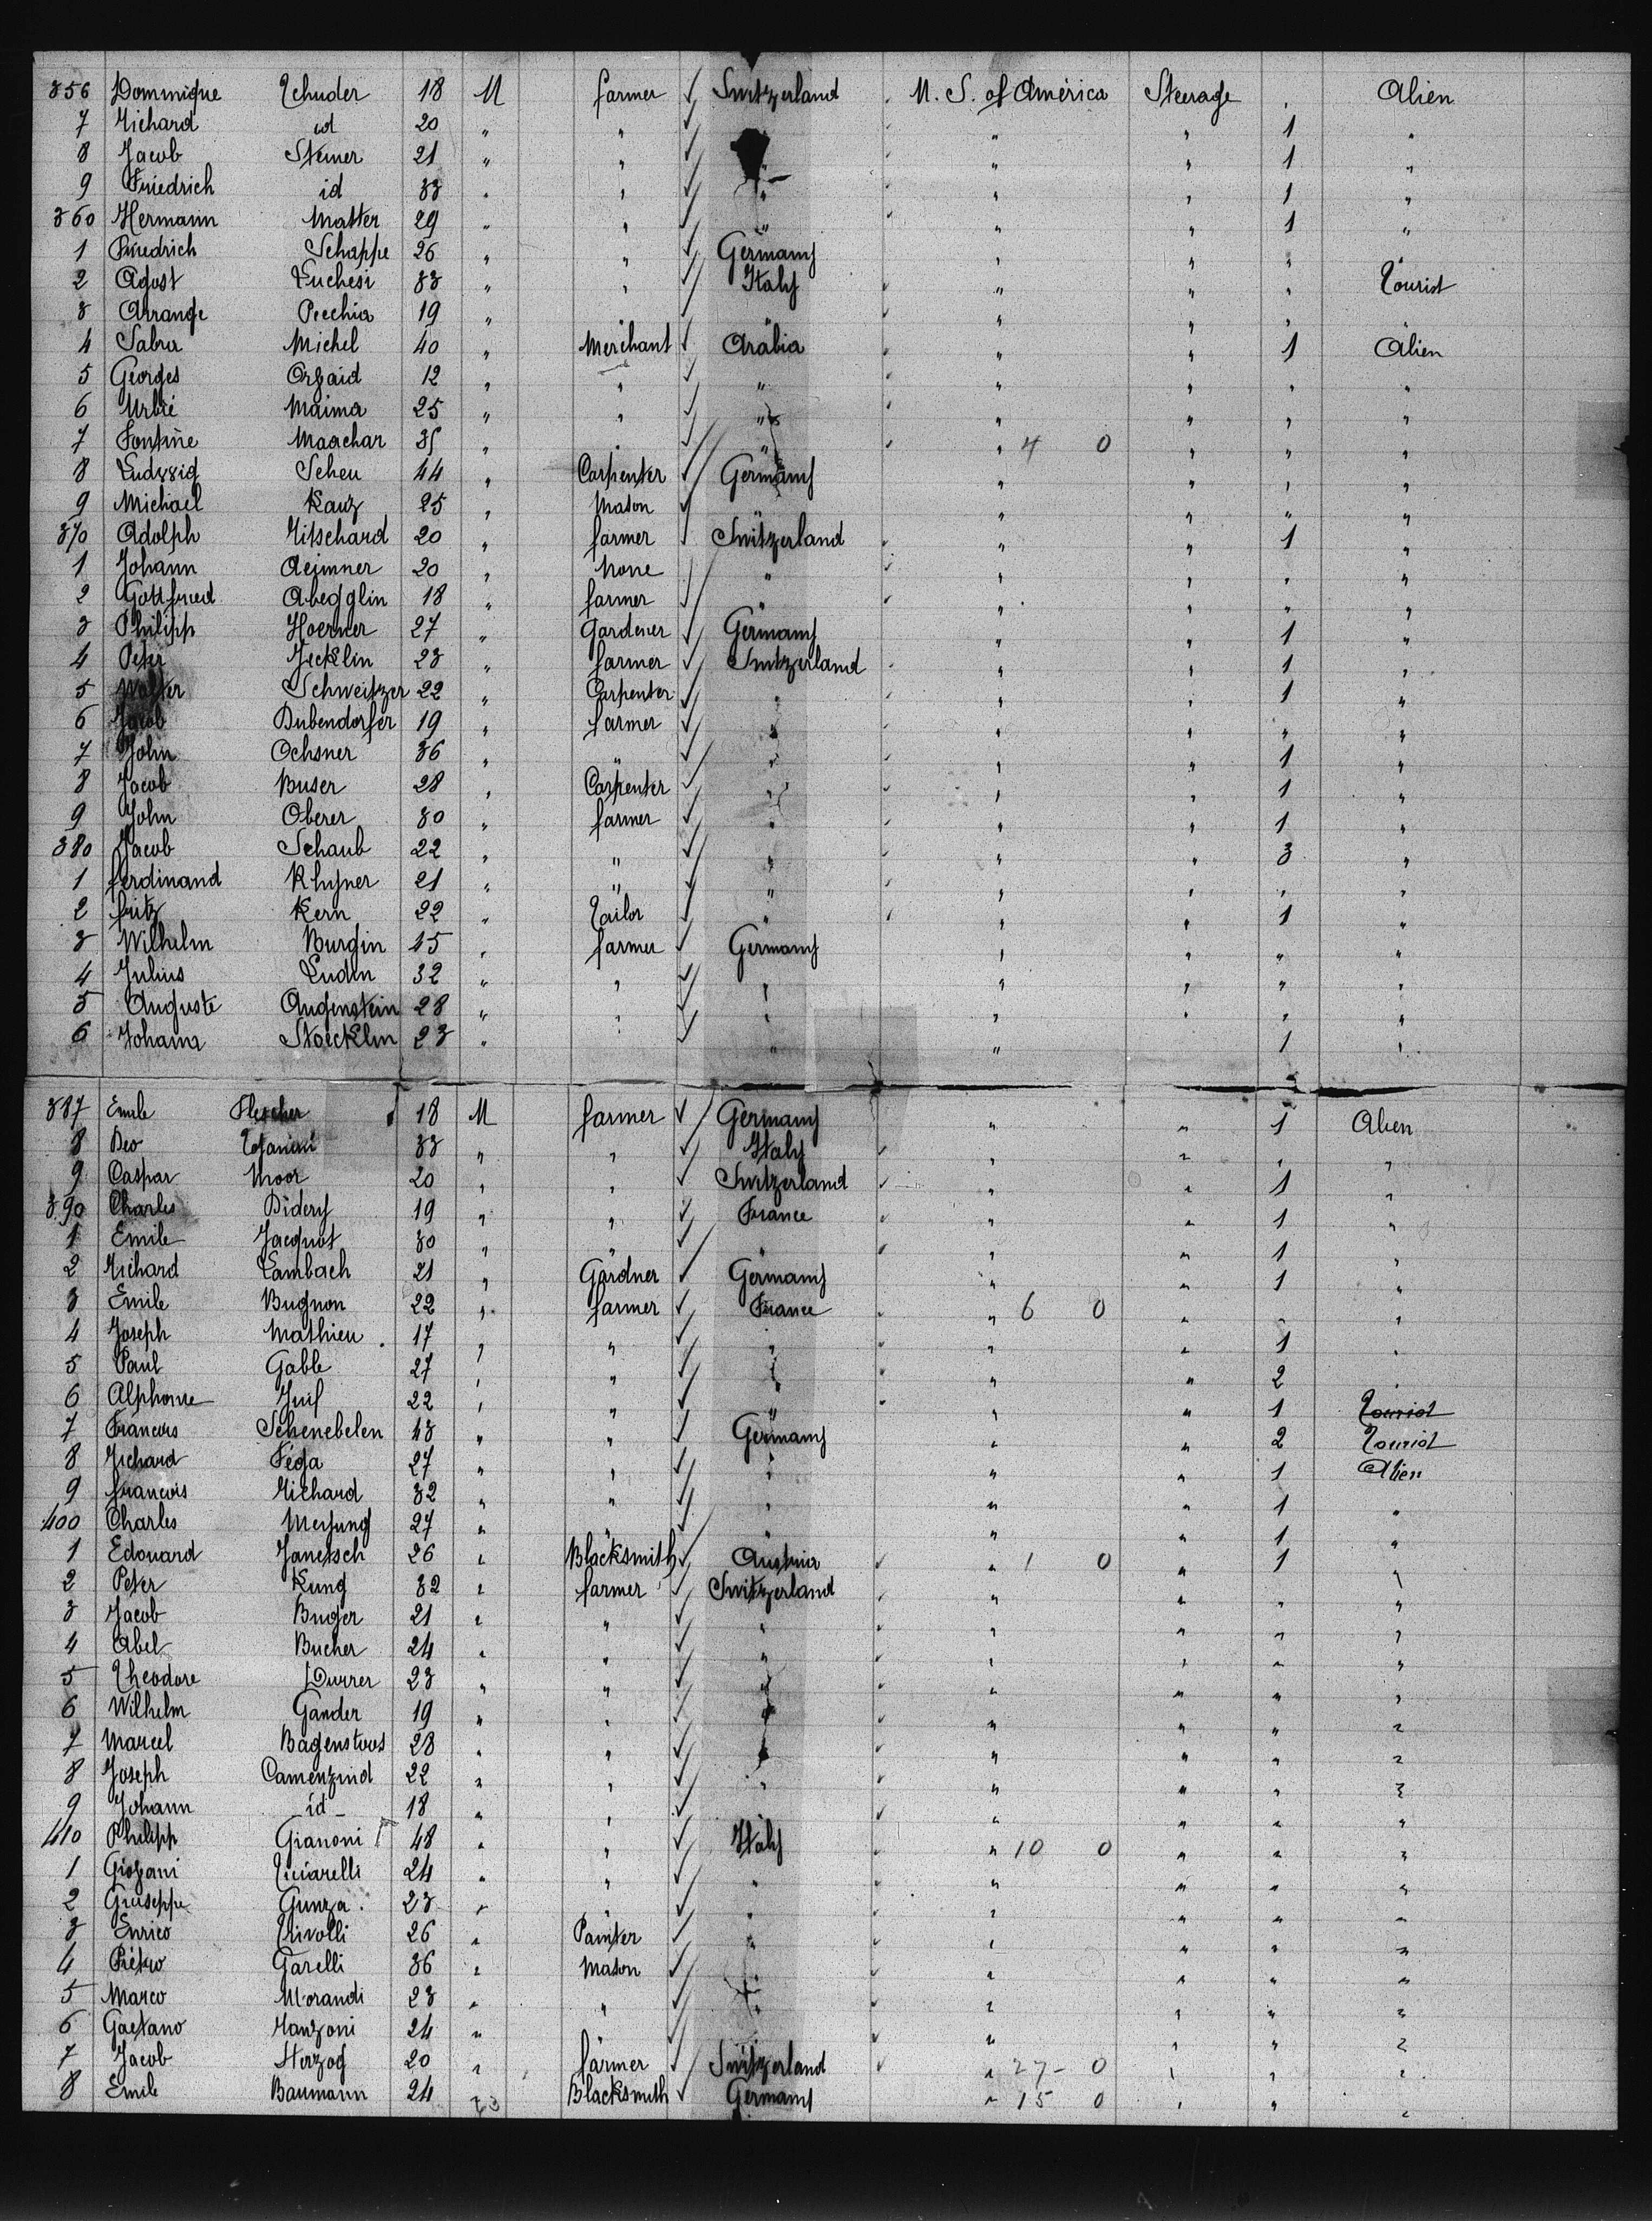 356 Dominique Tchuder 18 M farmer ✓ Switzerland U. S. of America Steerage Alien
7 Richard id 20 " " ✓ " " 1 "
8 Jacob Steiner 21 " " ✓ " " " 1 "
9 Friedrich id 33 " " ✓ " " " 1 "
360 Hermann Matter 29 " " ✓ " " " 1 "
1 Friedrich Schappe 26 " " ✓ Germany " " " "
2 Agost Luchesi 33 " " ✓ Italy " " " Tourist
3 Arrange Pecchia 19 " " " " " " "
4 Sabra Michel 40 " Merchant ✓ Arabia " " 1 Alien
5 Georges Orfaid 12 " " ✓ " " " " "
6 Urbié Maima 25 " " ✓ " " " " "
7 Fontine Maachar 35 " " ✓ " " 4 0 " " "
8 Ludwig Scheu 44 " Carpenter ✓ Germany " " " "
9 Michael Kauz 25 " Mason ✓ " " " " "
370 Adolph Ritschard 20 " farmer ✓ Switzerland " " 1 "
1 Johann 20 " None ✓ " " " " "
2 Gottfried Abegglin 18 " farmer ✓ " " " " "
3 Philipp Hoerner 27 " Gardener ✓ Germany " " 1 "
4 Peter Jecklin 23 " farmer ✓ Switzerland " " 1 "
5 Walter Schweitzer 22 " Carpenter ✓ " " " 1 "
6 Jacob Dubendorfer 19 " farmer ✓ " " " " "
7 John Ochsner 36 " " ✓ " " " 1 "
8 Jacob Buser 28 " Carpenter ✓ " " " 1 "
9 John Oberer 30 " farmer ✓ " " " 1 "
380 Jacob Schaub 22 " " ✓ " " " 3 "
1 ferdinand Rhyner 21 " " ✓ " " " " "
2 fritz Kern 22 " Tailor ✓ " " " 1 "
3 Wilhelm Burgin 45 " farmer ✓ Germany " " " "
4 Julius Ludin 32 " " ✓ " " " " "
5 Auguste Augenstein 28 " " ✓ " " " " "
6 Johann Stoecklin 23 " ✓ " " 1 "
387 Emile Fletcher 18 M farmer ✓ Germany " " 1 Alien
8 Deo 33 " " ✓ Italy " " " "
9 Caspar Moor 20 " " ✓ Switzerland " " 1 "
390 Charles Didery 19 " " ✓ France " " 1 "
1 Emile Jacquot 30 " " ✓ " " " 1 "
2 Richard Lambach 21 " Gardner ✓ Germany " " 1 "
3 Emile Bugnon 22 " farmer ✓ France " 6 0 " " "
4 Joseph Mathieu 17 " " ✓ " " " 1 "
5 Paul Gable 27 " " ✓ " " " 2 "
6 Alphonse Juif 22 " " ✓ " " " 1 Tourist
7 Francois Schenebelen 43 " " ✓ Germany " " 2 Tourist
8 Richard Féga 27 " " ✓ " " " 1 Alien
9 francois Richard 32 " " ✓ " " " 1 "
400 Charles Meyung 27 " " ✓ " " " 1 "
1 Edouard Janetsch 26 " Blacksmith ✓ Austria " 1 0 " 1 "
2 Peter Kung 32 " farmer ✓ Switzerland " " " "
3 Jacob Buger 21 " " ✓ " " " " "
4 Abel Bucher 24 " " ✓ " " " " "
5 Theodore Durrer 23 " " ✓ " " " " "
6 Wilhelm Gander 19 " " ✓ " " " " "
7 Marcel Bagenstoos 28 " " ✓ " " " " "
8 Joseph Camenzind 22 " " ✓ " " " " "
9 Johann id 18 " " ✓ " " " " "
410 Philipp Gianoni 48 " " ✓ Italy " 10 0 " " "
1 Giovani Ricciarelli 24 " " ✓ " " " " "
2 Giuseppe Gunza 23 " " ✓ " " " " "
3 Enrico Rivolli 26 " Painter ✓ " " " " "
4 Piétro Garelli 36 " Mason ✓ " " " " "
5 Marco Morandi 23 " " ✓ " " " " "
6 Gaetano Manzoni 24 " " ✓ " " " "
7 Jacob Herzog 20 " farmer ✓ Switzerland " 27 - 0 " " "
8 Emile Baumann 24 " Blacksmith ✓ Germany " 15 0 " " "